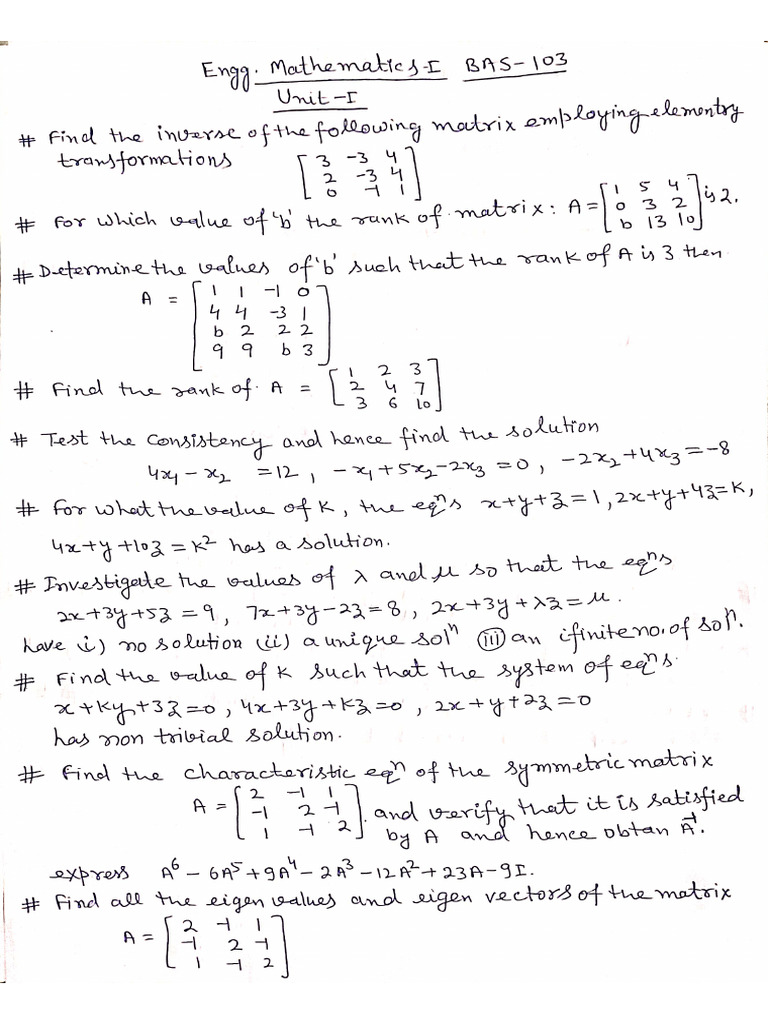 Engg. Mathematics-I BAS-103
Unit-I
# Find the inverse of the following matrix employing elementry
transformations [3 -3 4
2 -3 4
0 -1 1]
# For which value of 'b' the rank of matrix: A = [1 5 4
0 3 2
b 13 10] is 2.
# Determine the values of 'b' such that the rank of A is 3 then
A = [1 1 -1 0
4 4 -3 1
b 2 2 2
9 9 b 3]
# Find the rank of A = [1 2 3
2 4 7
3 6 10]
# Test the consistency and hence find the solution
4x₁ - x₂ = 12, -x₁ + 5x₂ - 2x₃ = 0, -2x₂ + 4x₃ = -8
# For what the value of K, the eqⁿs x+y+z=1, 2x+y+4z=K,
4x+y+10z=K² has a solution.
# Investigate the values of λ and μ so that the eqⁿs
2x+3y+5z=9, 7x+3y-2z=8, 2x+3y+λz=μ.
have i) no solution (ii) a unique solⁿ (iii) an ifinite no. of solⁿ.
# Find the value of K such that the system of eqⁿs.
x+Ky+3z=0, 4x+3y+Kz=0, 2x+y+2z=0
has non trivial solution.
# Find the characteristic eqⁿ of the symmetric matrix
A = [2 -1 1
-1 2 -1
1 -1 2] and verify that it is satisfied
by A and hence obtan A⁻¹.
express A⁶ - 6A⁵ + 9A⁴ - 2A³ - 12A² + 23A - 9I.
# Find all the eigen values and eigen vectors of the matrix
A = [2 -1 1
-1 2 -1
1 -1 2]